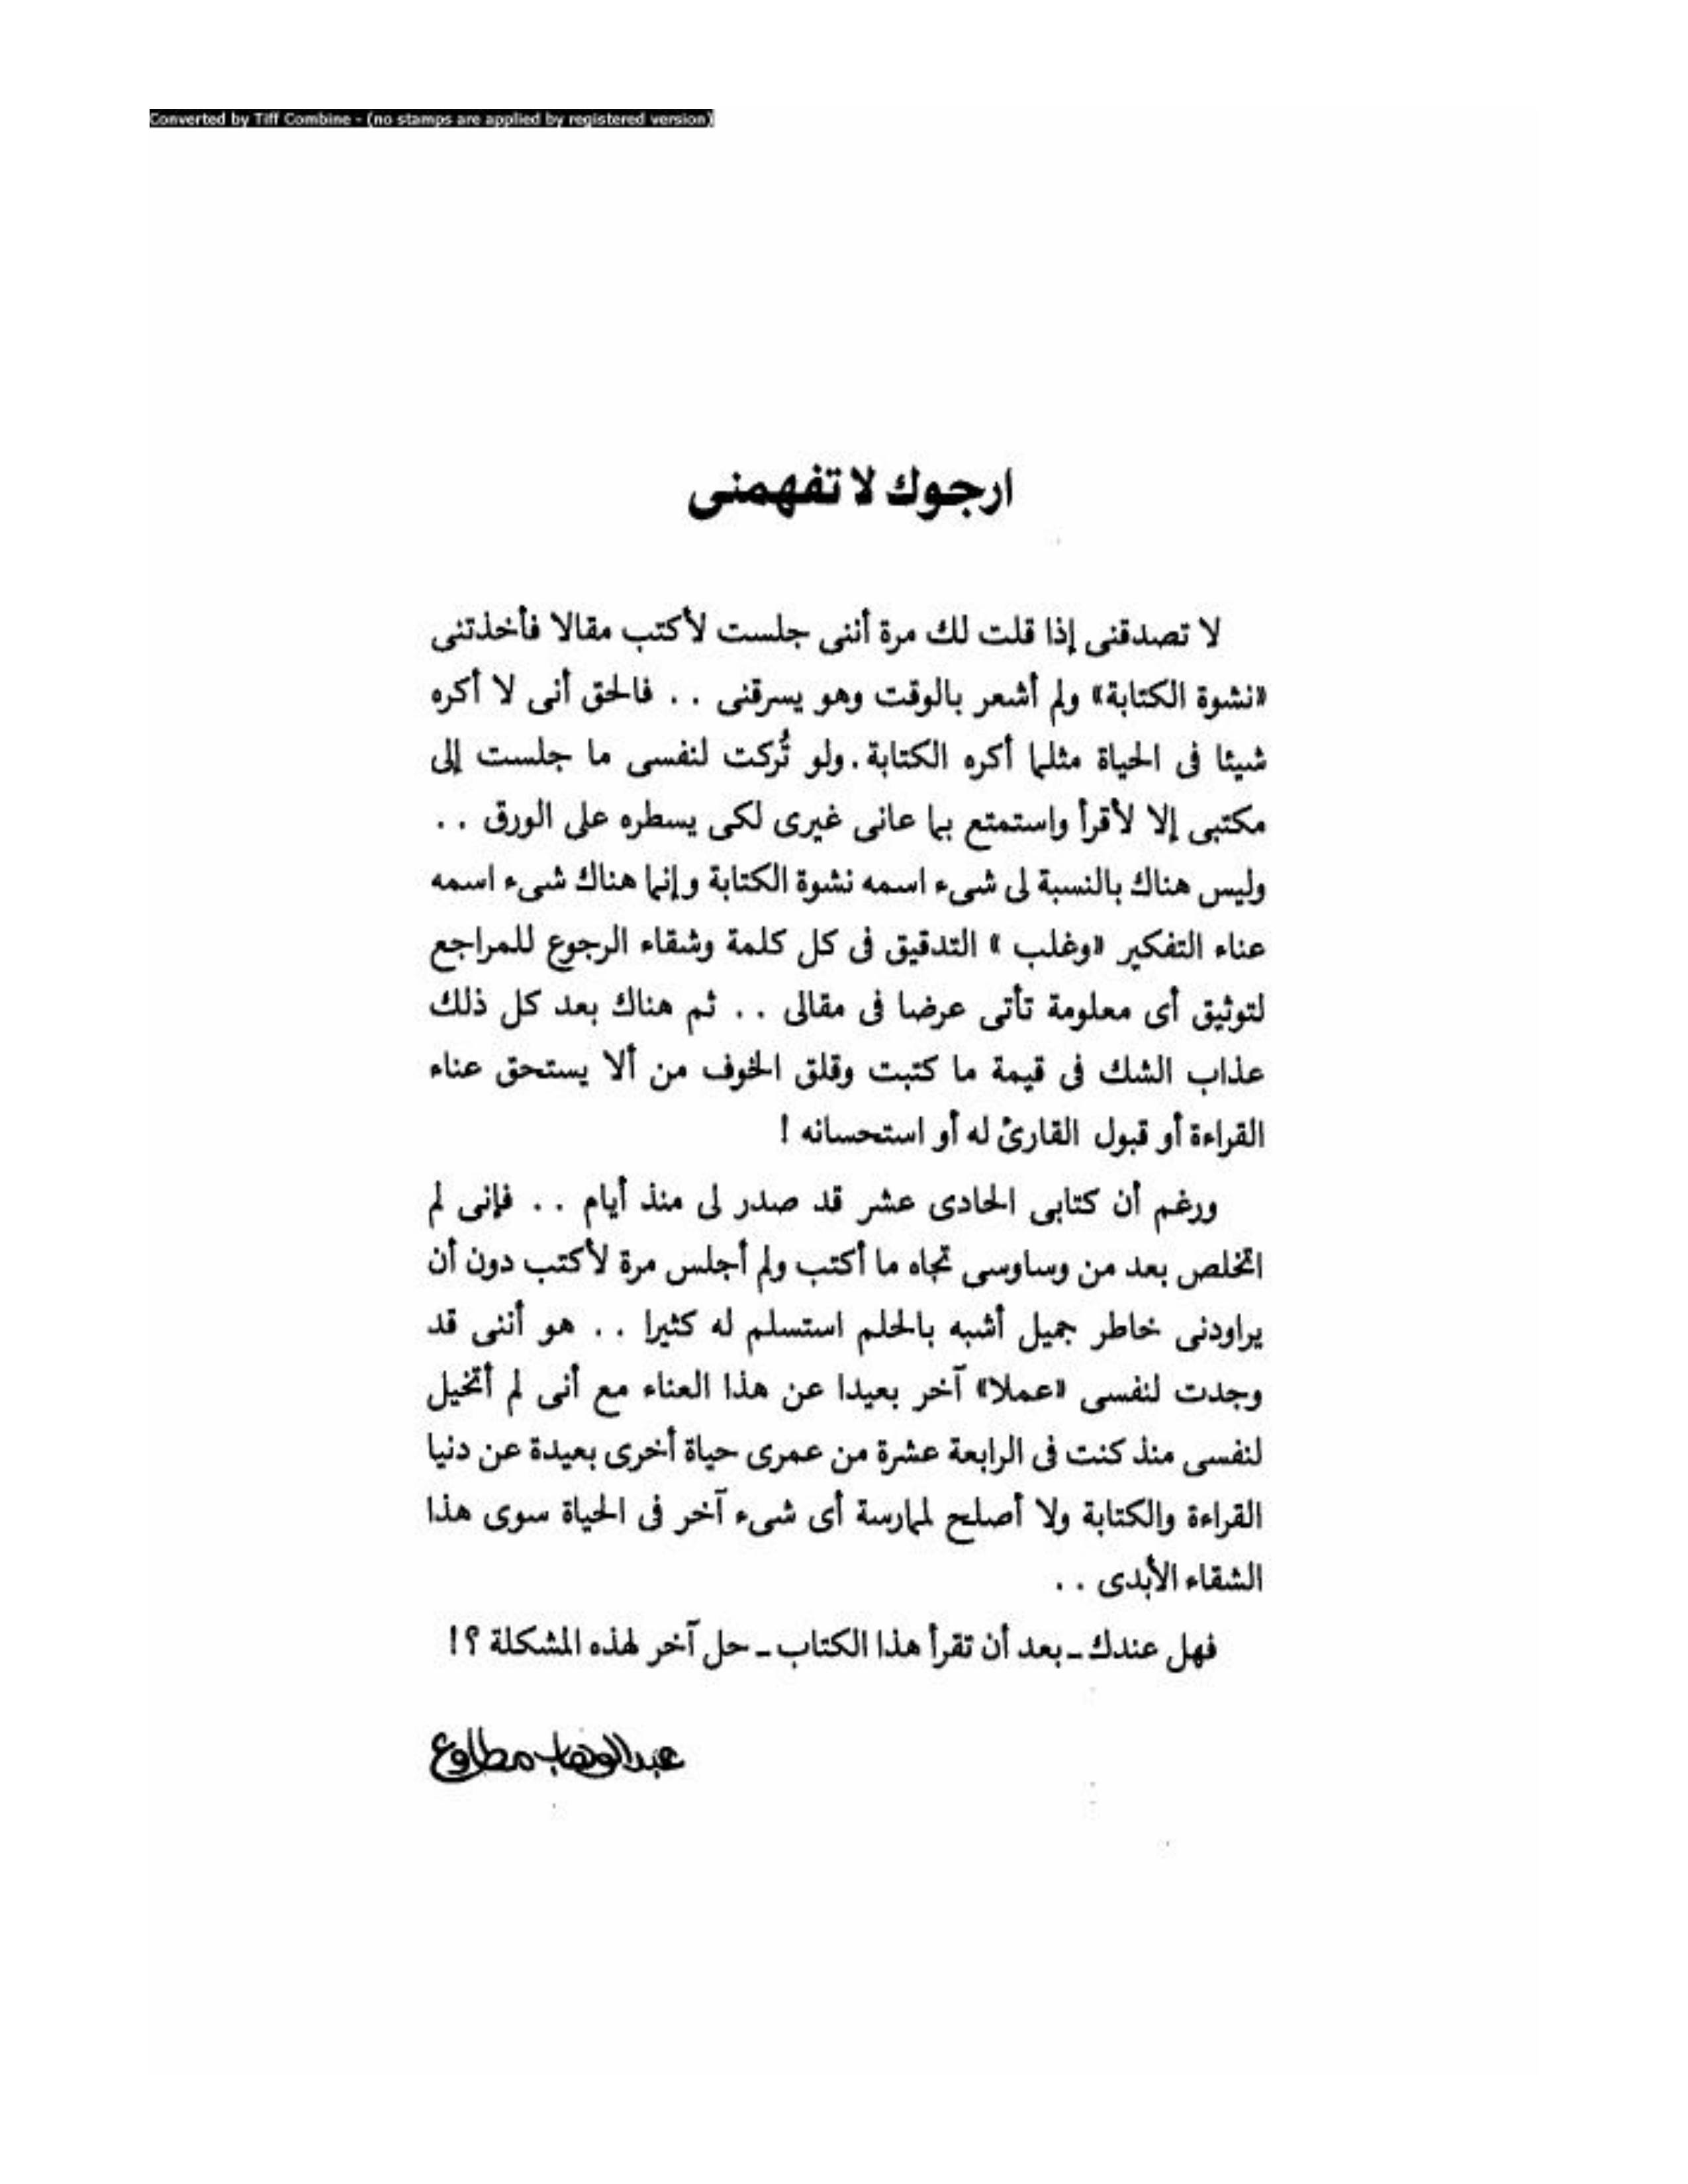 Converted by Tiff Combine - (no stamps are applied by registered version)
ارجوك لا تفهمنى
لا تصدقنى إذا قلت لك مرة أننى جلست لأكتب مقالا فأخذتنى
«نشوة الكتابة» ولم أشعر بالوقت وهو يسرقنى . . فالحق أنى لا أكره
شيئا فى الحياة مثلما أكره الكتابة . ولو تُركت لنفسى ما جلست إلى
مكتبى إلا لأقرأ واستمتع بما عانى غيرى لكى يسطره على الورق . .
وليس هناك بالنسبة لى شىء اسمه نشوة الكتابة وإنما هناك شىء اسمه
عناء التفكير «وغلب » التدقيق فى كل كلمة وشقاء الرجوع للمراجع
لتوثيق أى معلومة تأتى عرضا فى مقالى . . ثم هناك بعد كل ذلك
عذاب الشك فى قيمة ما كتبت وقلق الخوف من ألا يستحق عناء
القراءة أو قبول القارئ له أو استحسانه !
ورغم أن كتابى الحادى عشر قد صدر لى منذ أيام . . فإنى لم
اتخلص بعد من وساوسى تجاه ما أكتب ولم أجلس مرة لأكتب دون أن
يراودنى خاطر جميل أشبه بالحلم استسلم له كثيرا . . هو أننى قد
وجدت لنفسى «عملا» آخر بعيدا عن هذا العناء مع أنى لم أتخيل
لنفسى منذ كنت فى الرابعة عشرة من عمرى حياة أخرى بعيدة عن دنيا
القراءة والكتابة ولا أصلح لممارسة أى شىء آخر فى الحياة سوى هذا
الشقاء الأبدى . .
فهل عندك ـ بعد أن تقرأ هذا الكتاب ـ حل آخر لهذه المشكلة ؟ !
عبد الوهاب مطاوع